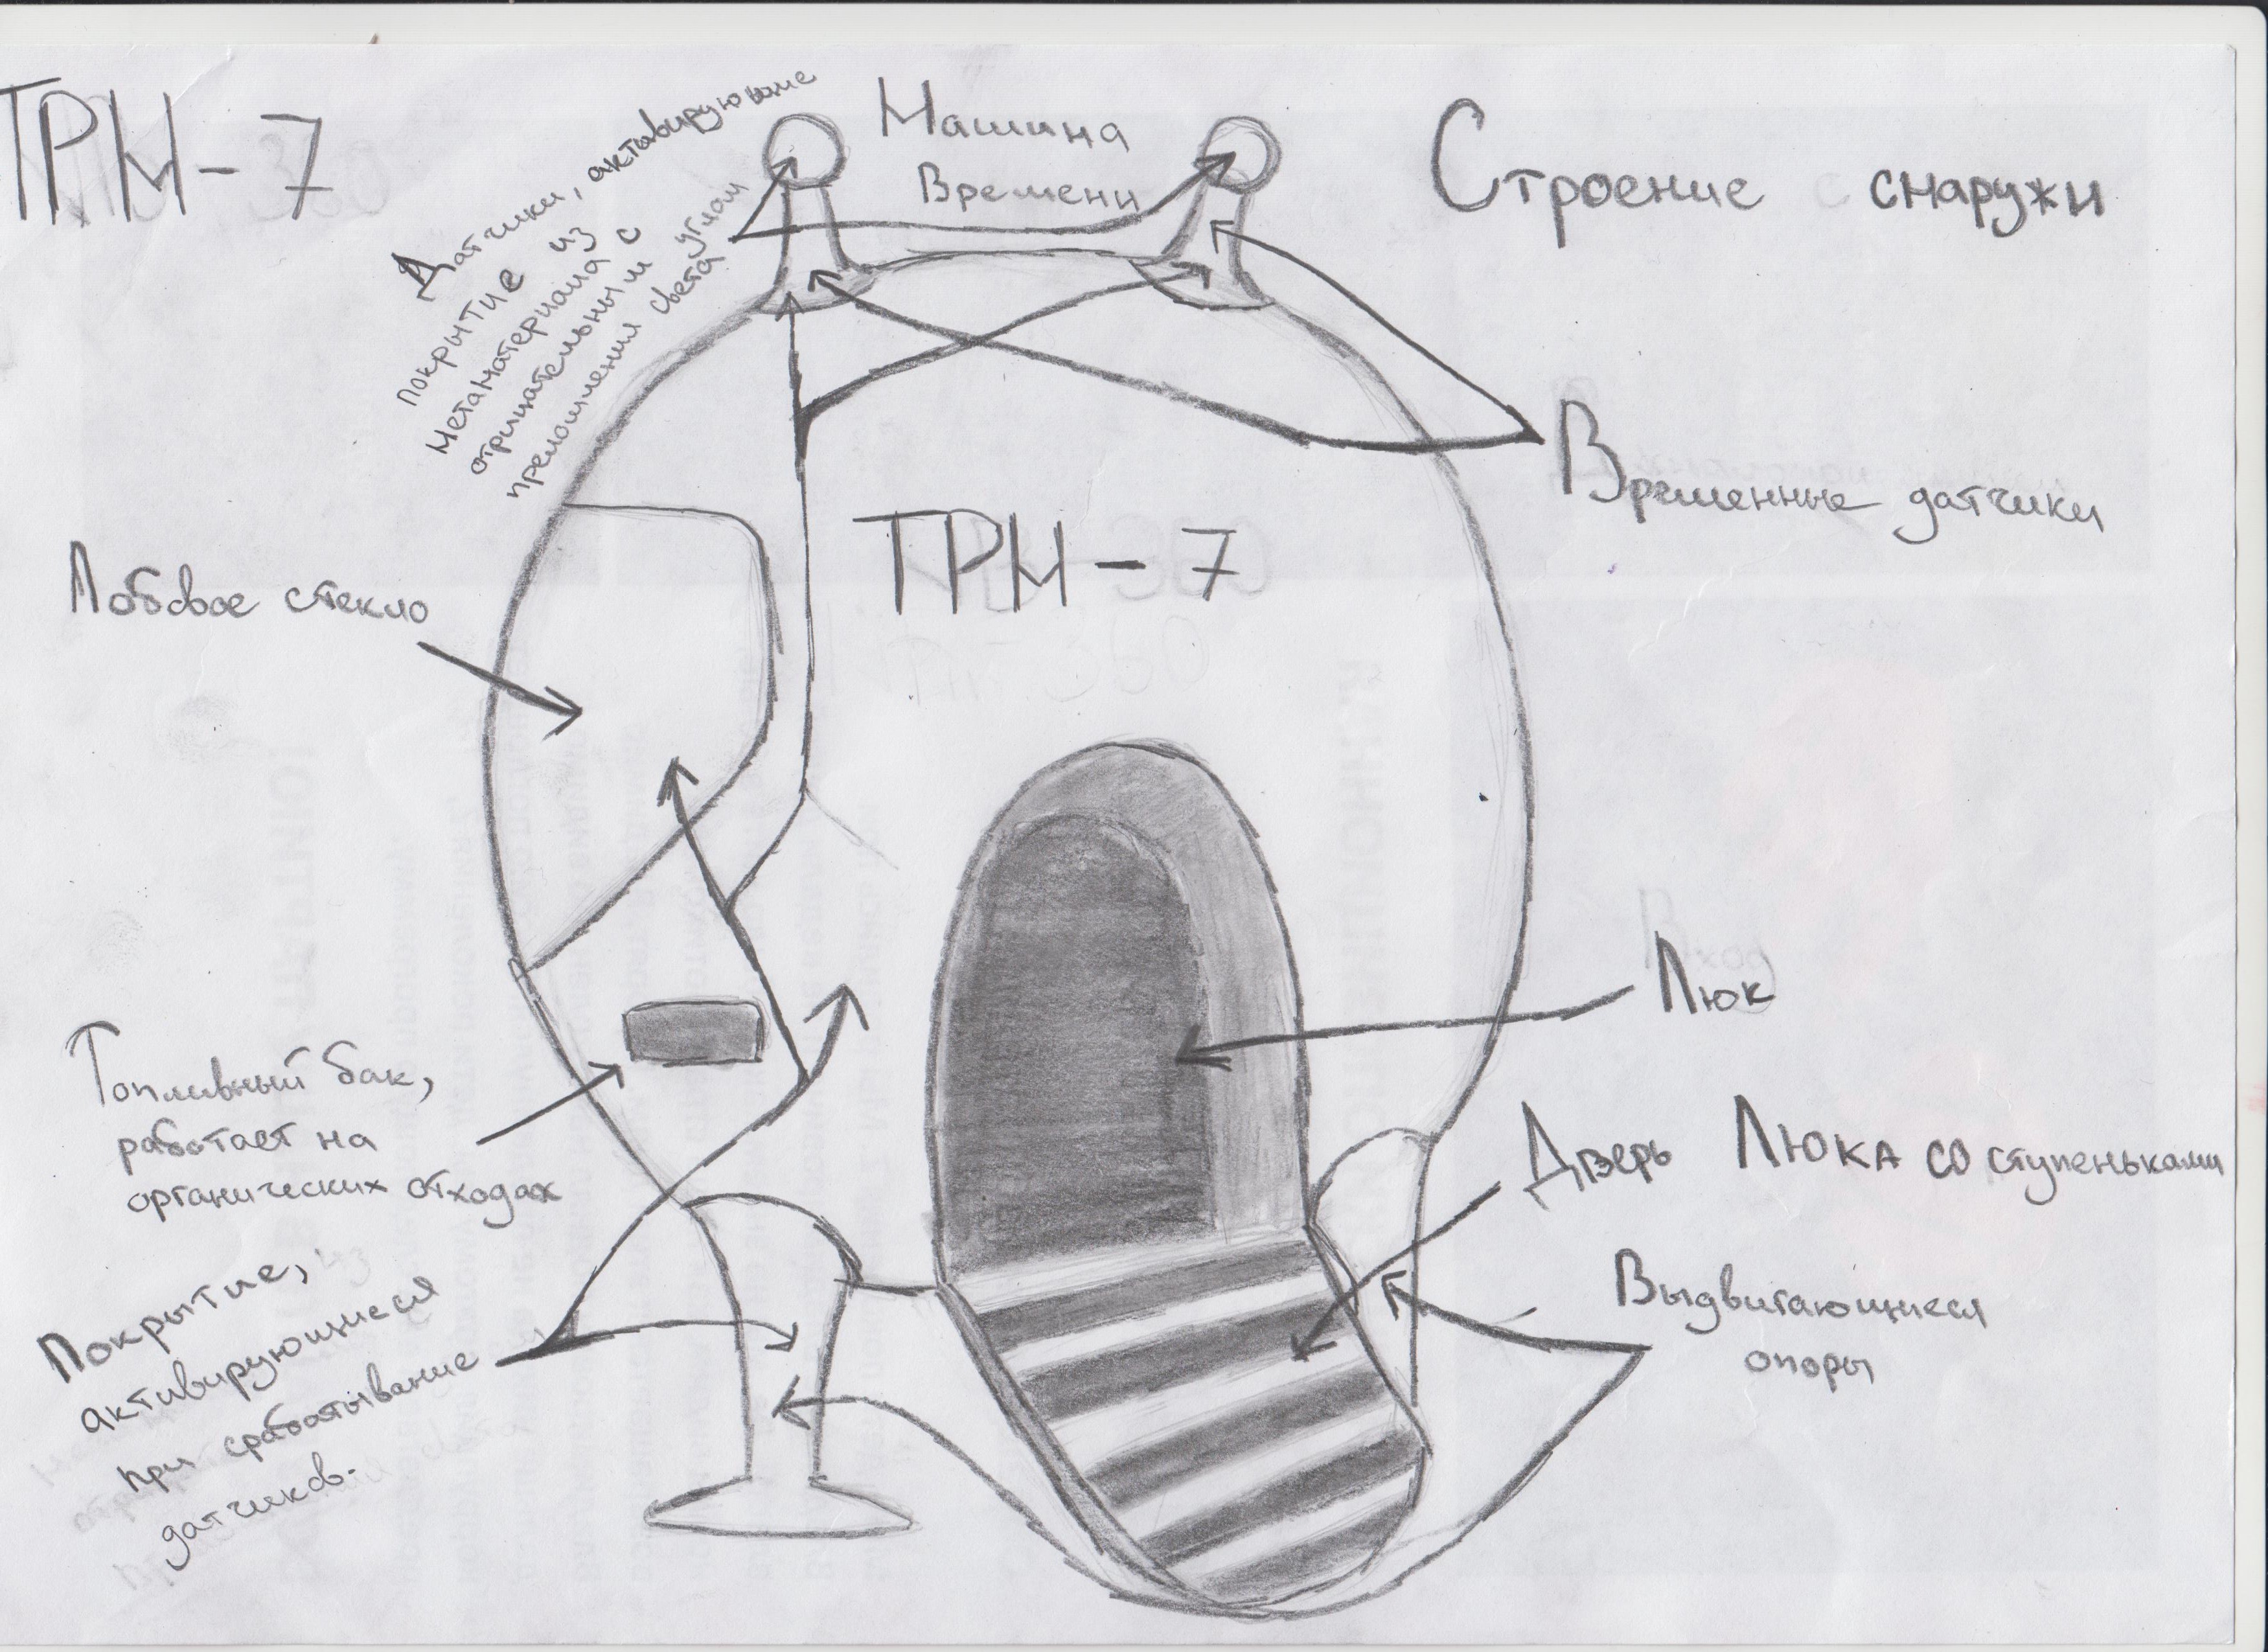 ТРМ-7
Машина
Времени
Строение снаружи
Датчики, активирующие
покрытие из
метаматериала с
отрицательным углом
преломления света
Временные датчики
Лобовое стекло
ТРМ-7
Люк
Топливный бак,
работает на
органических отходах
Дверь Люка со ступеньками
Выдвигающиеся
опоры
Покрытие,
активирующиеся
при срабатывание
датчиков.